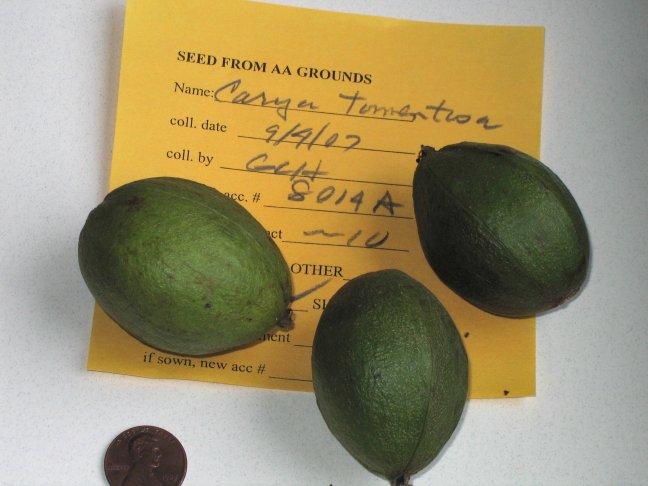 SEED FROM AA GROUNDS
Name: Carya tomentosa
coll. date 9/9/07
coll. by GCH
acc. # 8014A
ct ~10
OTHER
SI
ment
if sown, new acc #